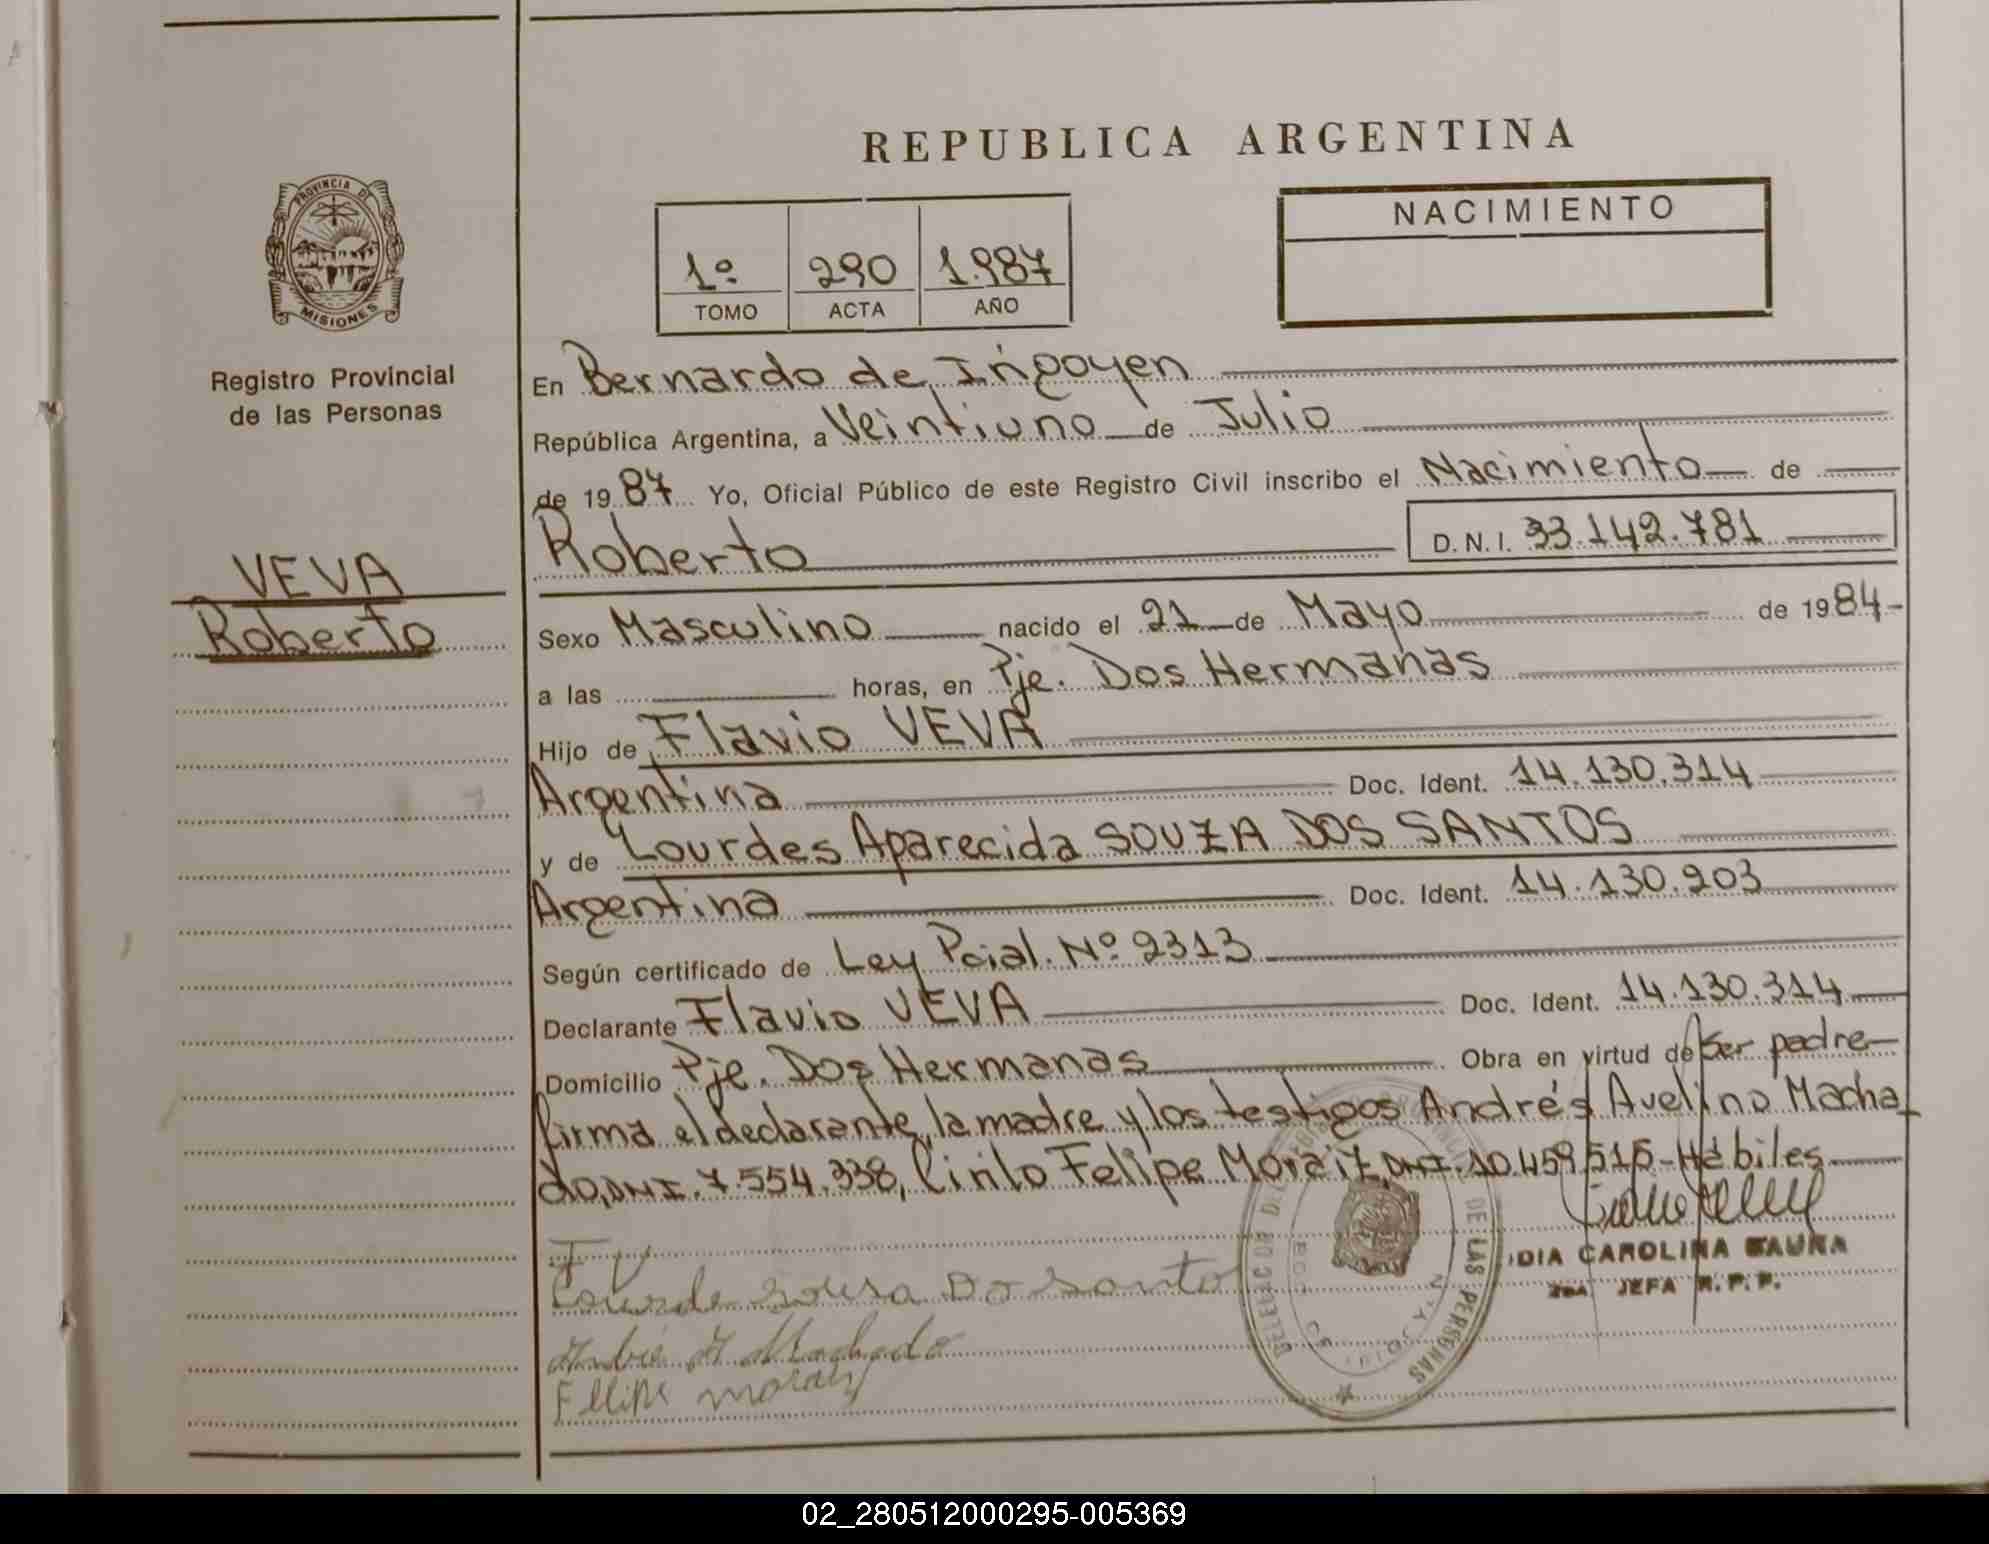 REPUBLICA ARGENTINA
PROVINCIA DE
MISIONES
Registro Provincial
de las Personas
VEVA
Roberto
1º 290 1.987
TOMO ACTA AÑO
NACIMIENTO
En Bernardo de Irigoyen
República Argentina, a Veintiuno de Julio
de 19 87 Yo, Oficial Público de este Registro Civil inscribo el Nacimiento de
Roberto D.N.I. 33.142.781
Sexo Masculino nacido el 21 de Mayo de 1984-
a las horas, en Pje. Dos Hermanas
Hijo de Flavio VEVA
Argentina Doc. Ident. 14.130.314
y de Lourdes Aparecida SOUZA DOS SANTOS
Argentina Doc. Ident. 14.130.203
Según certificado de Ley Pcial. Nº 2313
Declarante Flavio VEVA Doc. Ident. 14.130.314
Domicilio Pje. Dos Hermanas Obra en virtud de Ser padre
firma el declarante, la madre y los testigos Andrés Avelino Macha
do, DNI. 7.554.338, Cirilo Felipe Moraiz, DNI. 10.459.515-Hábiles
F V
Lourde Sousa Do Santo
A Machado
Felipe Moraiz
DE LAS PERSONAS
DIA CAROLINA
JEFA R.P.P.
02_280512000295-005369